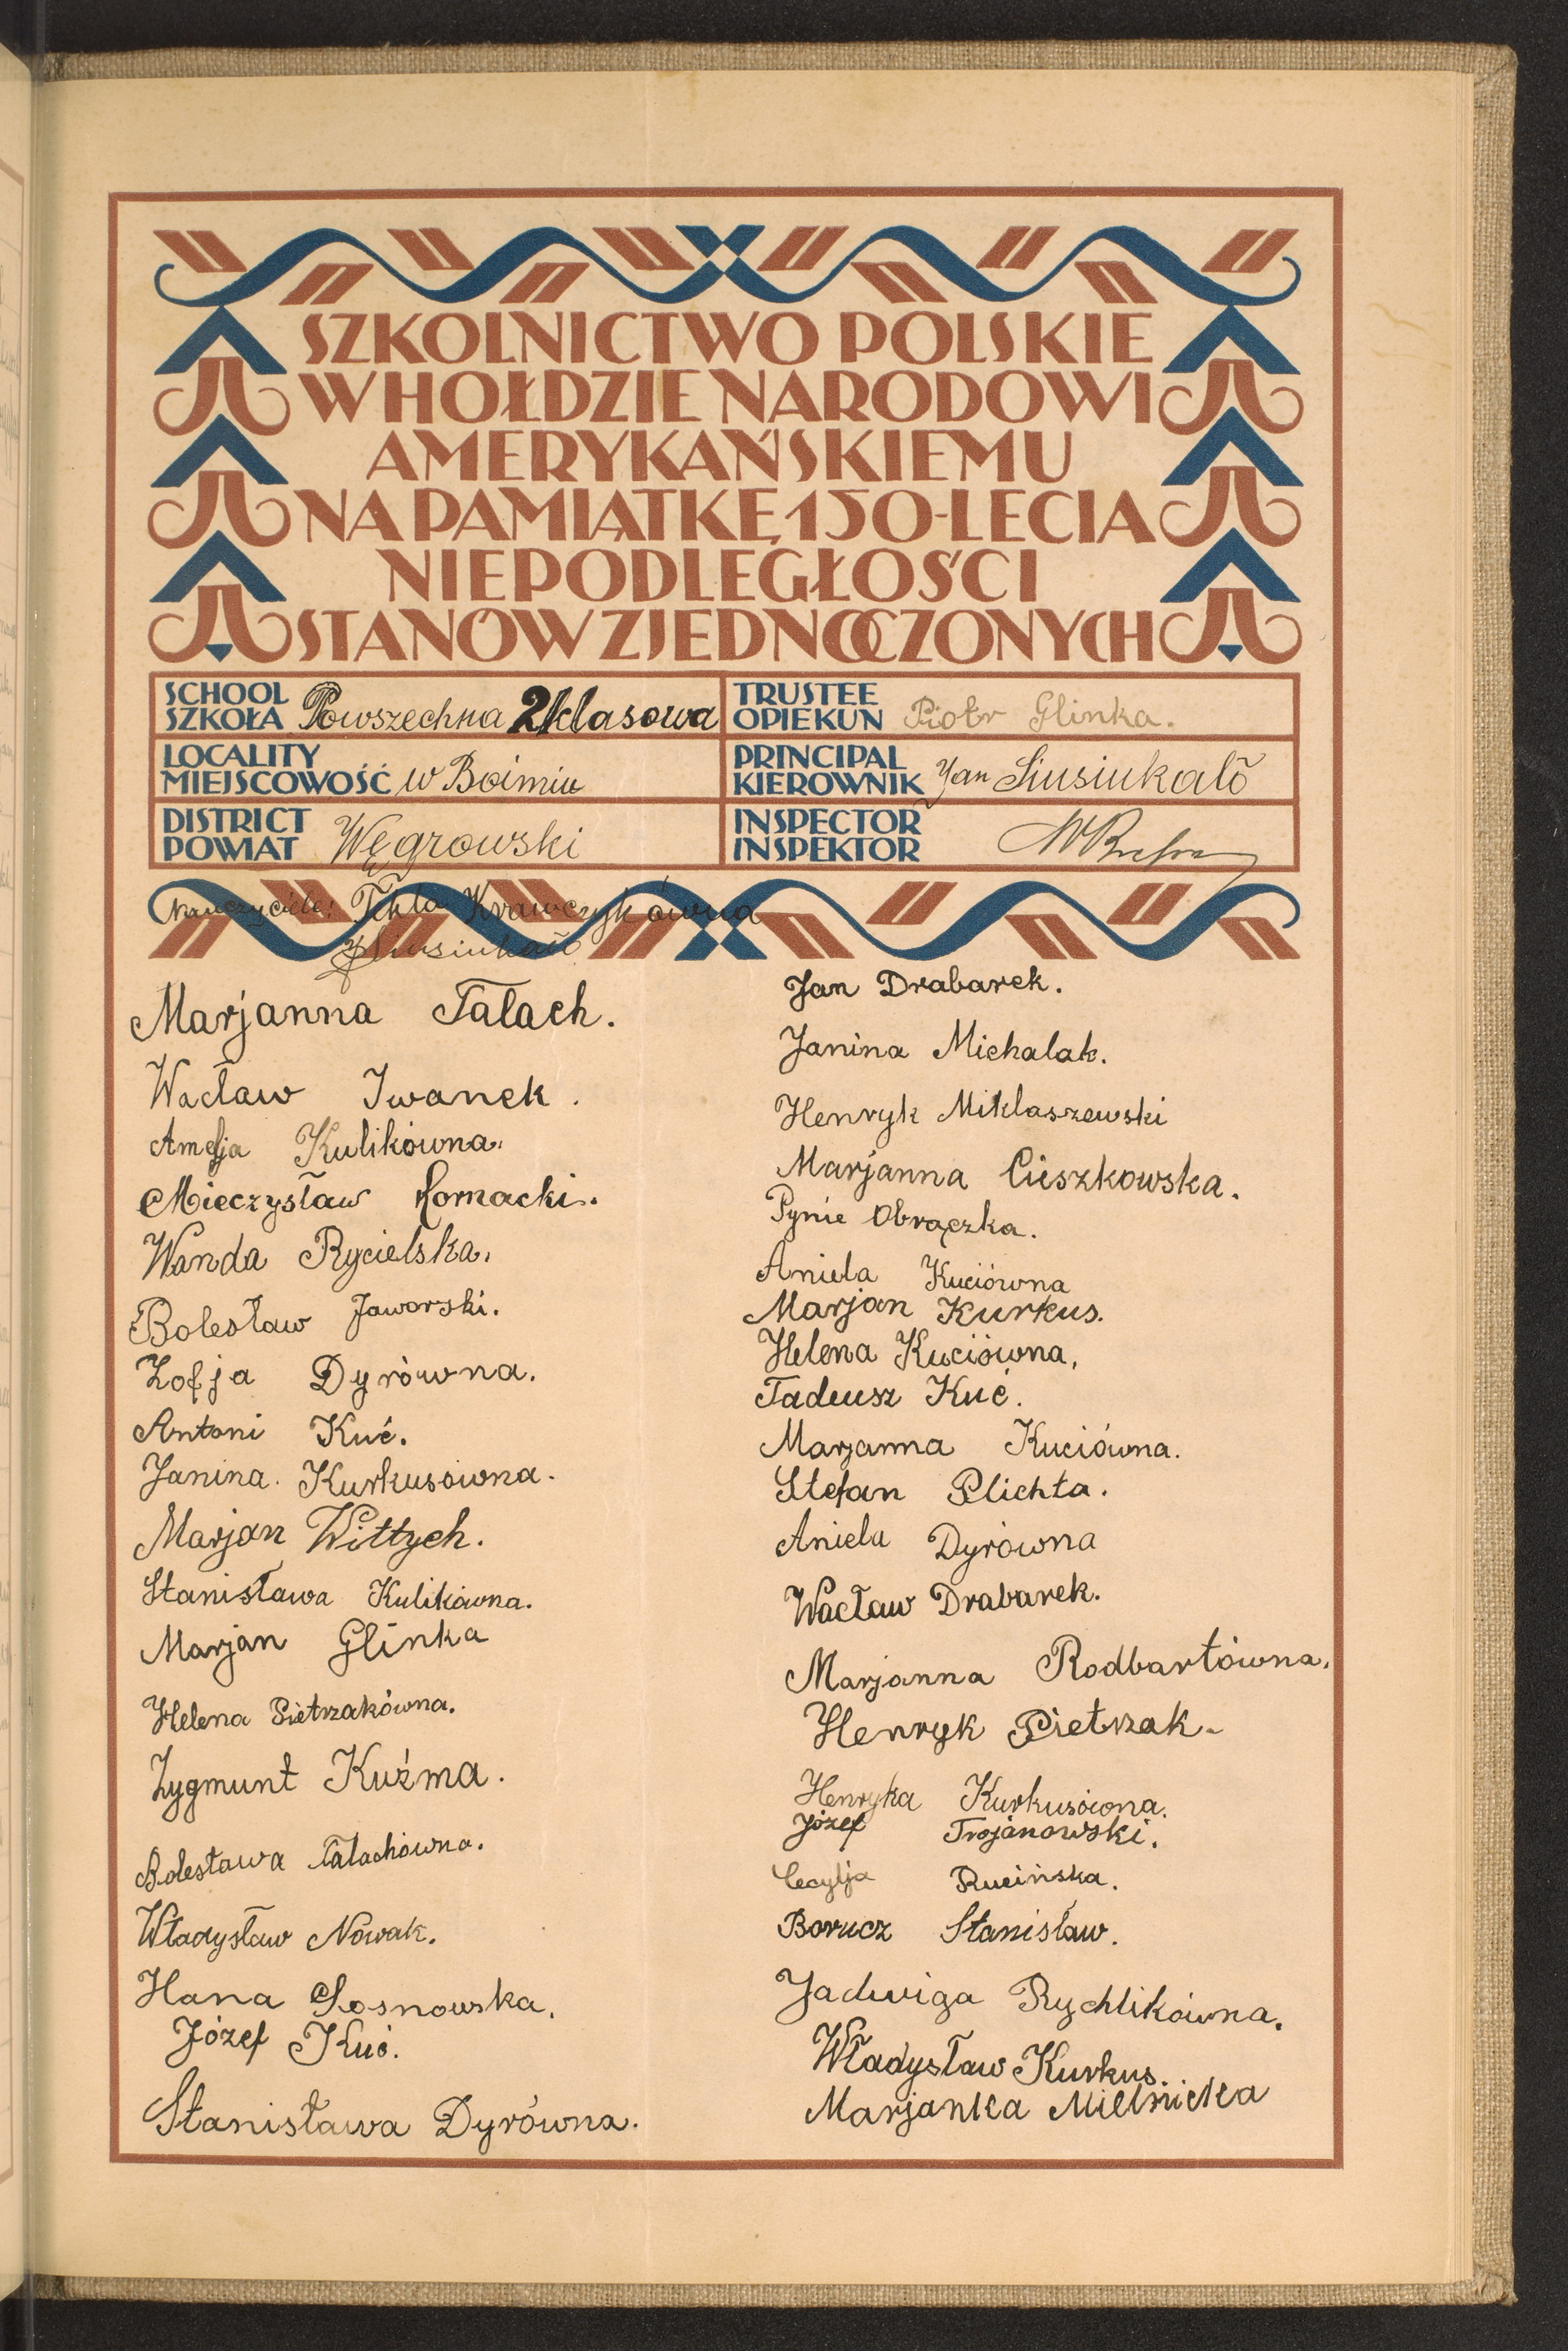 SZKOLNICTWO POLSKIE
W HOŁDZIE NARODOWI
AMERYKAŃSKIEMU
NA PAMIĄTKĘ 150-LECIA
NIEPODLEGŁOŚCI
STANÓW ZJEDNOCZONYCH
SCHOOL
SZKOŁA Powszechna 2klasowa
TRUSTEE
OPIEKUN Piotr Glinka.
LOCALITY
MIEJSCOWOŚĆ w Boimiu
PRINCIPAL
KIEROWNIK Jan Siusiukało
DISTRICT
POWIAT Węgrowski
INSPECTOR
INSPEKTOR
Nauczyciele: Tekla Krawczykówna
JSiusiukało
Marjanna Tałach.
Wacław Iwanek.
Amelja Kulikówna.
Mieczysław Kornacki.
Wanda Rycielska.
Bolesław Jaworski.
Zofja Dyrówna.
Antoni Kuć.
Janina Kurkusówna.
Marjan Wittych.
Stanisława Kulikówna.
Marjan Glinka
Helena Pietrzakówna.
Zygmunt Kuźma.
Bolesława Tałachówna.
Władysław Nowak.
Hana Sosnowska.
Józef Kuć.
Stanisława Dyrówna.
Jan Drabarek.
Janina Michalak.
Henryk Miklaszewski
Marjanna Cieszkowska.
Pynie Obrączka.
Aniela Kuciówna
Marjan Kurkus.
Helena Kuciówna,
Tadeusz Kuć.
Marjanna Kuciówna.
Stefan Plichta.
Aniela Dyrówna
Wacław Drabarek.
Marjanna Rodbartówna.
Henryk Pietrzak.
Henryka Kurkusówna.
Józef Trojanowski.
Cecylja Rucińska.
Borucz Stanisław.
Jadwiga Rychlikówna.
Władysław Kurkus.
Marjanka Mielnicka